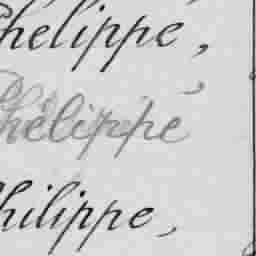 Phelippe,
Phelippe
Philippe,